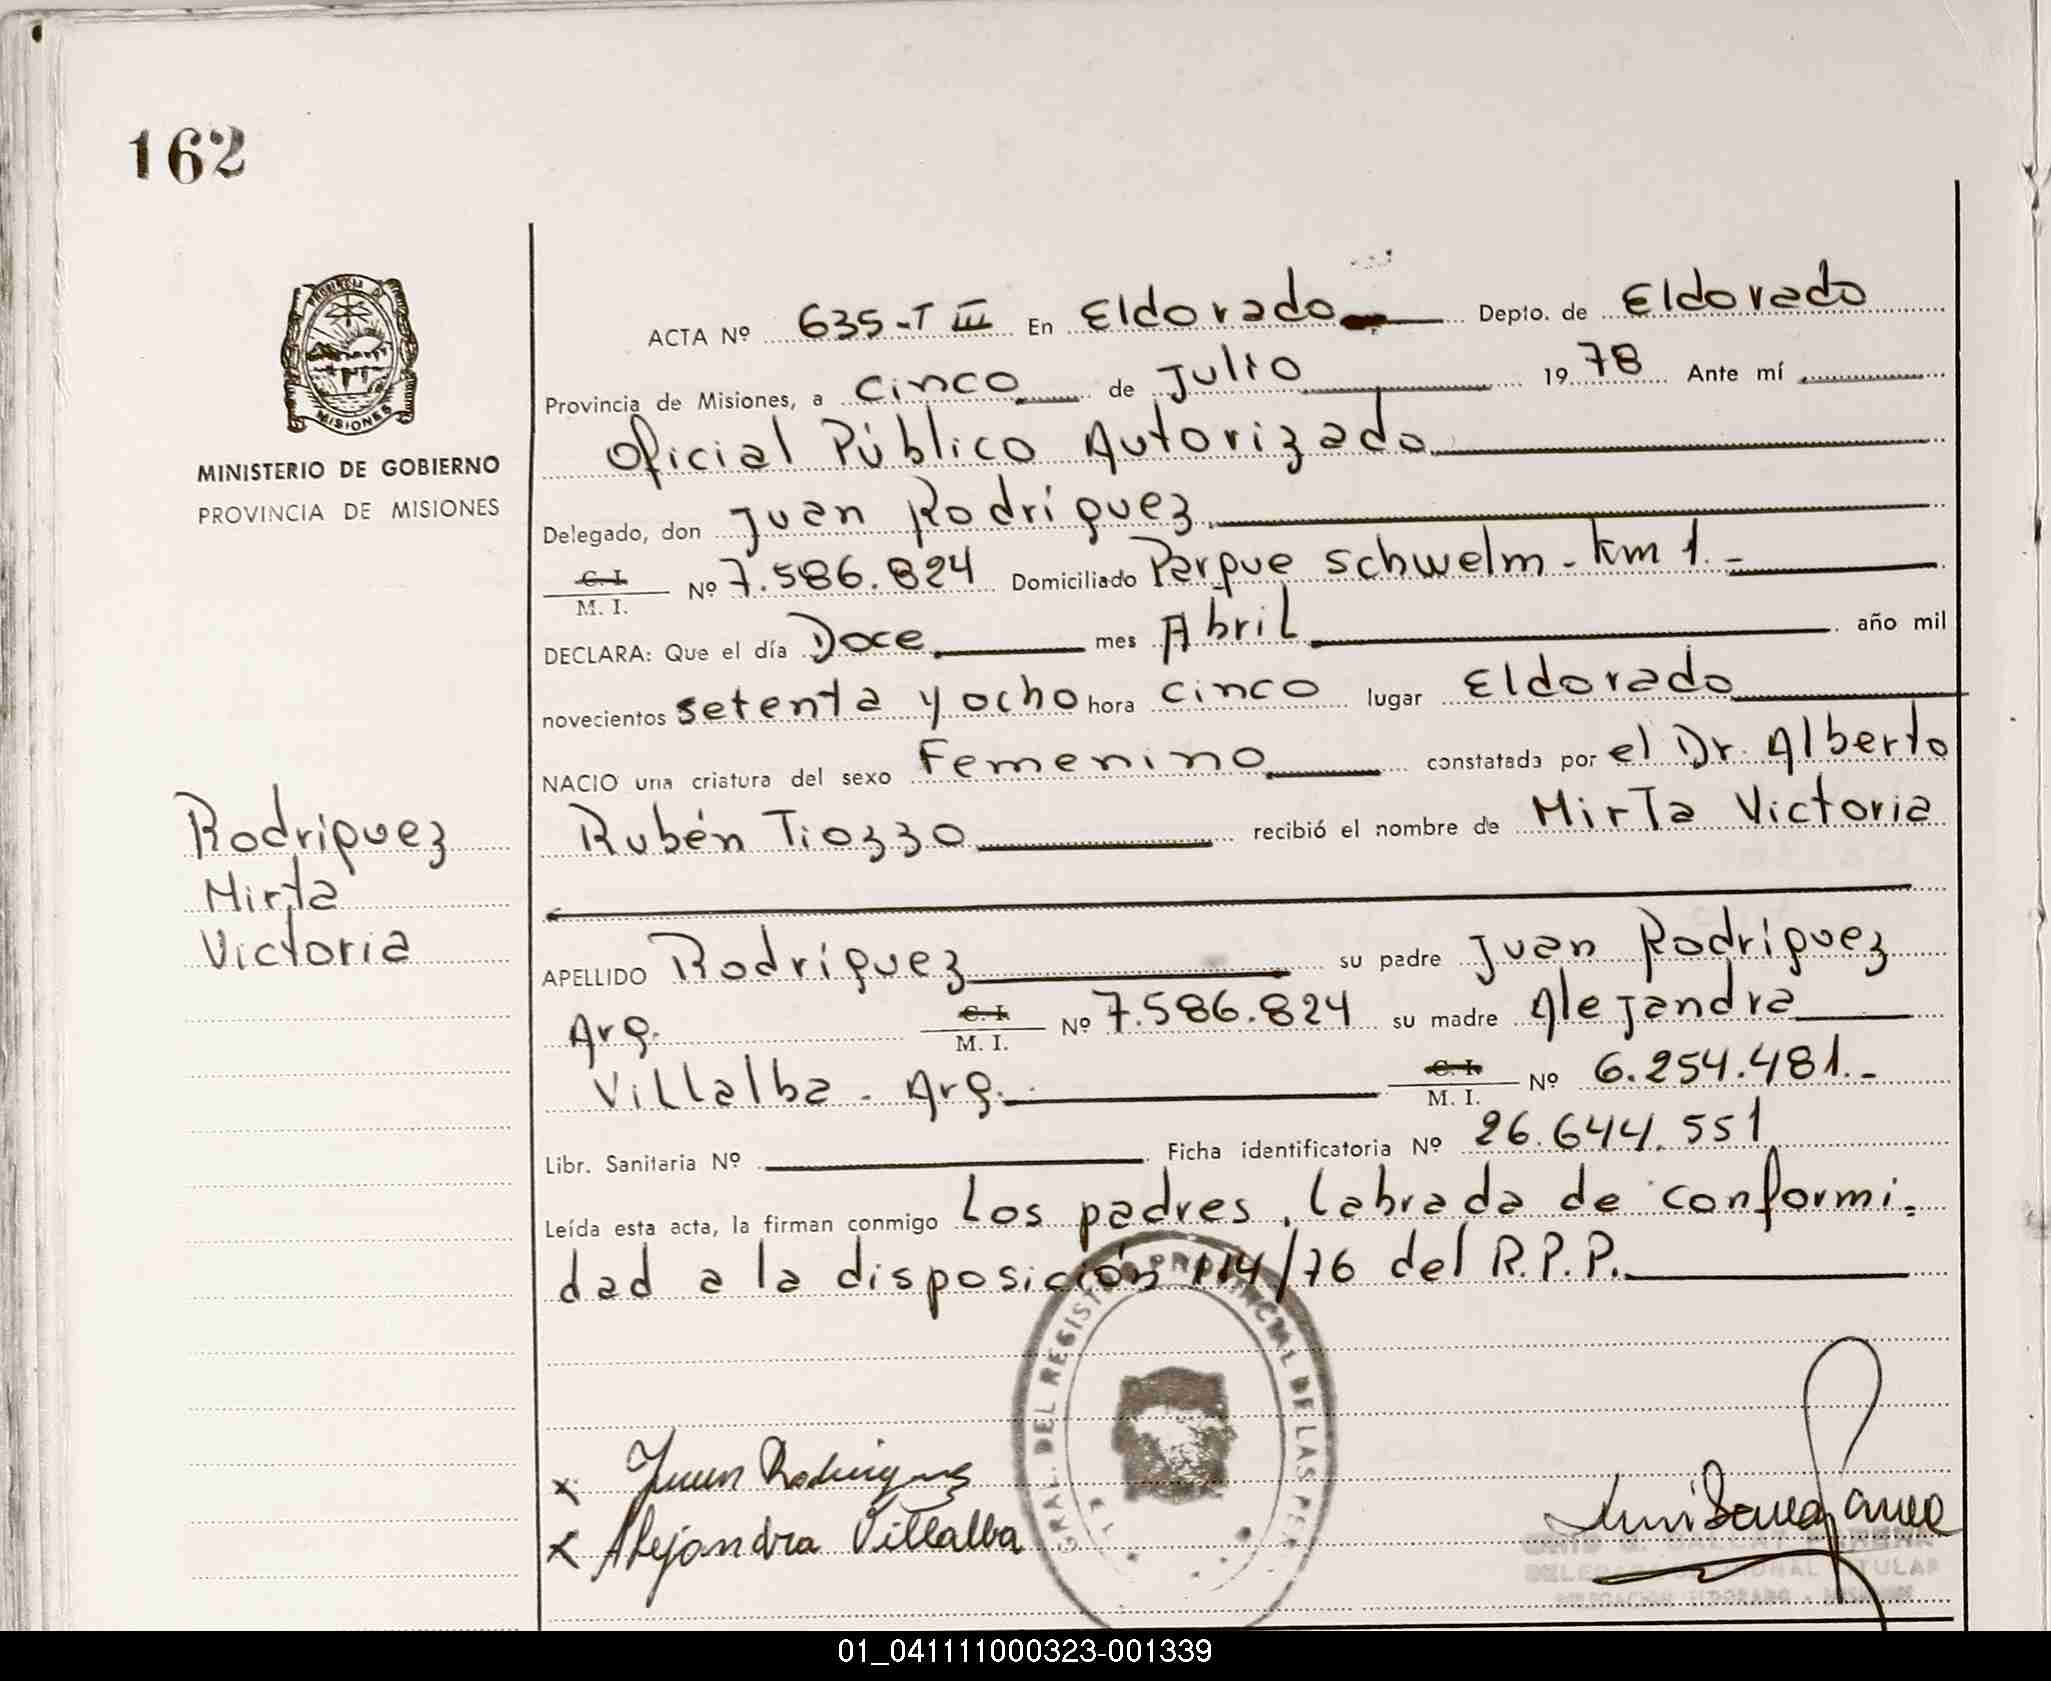 162
PROVINCIA DE
MISIONES
MINISTERIO DE GOBIERNO
PROVINCIA DE MISIONES
Rodríguez
Mirta
Victoria
ACTA Nº 635-T III En Eldorado Depto. de Eldorado
Provincia de Misiones, a cinco de Julio 1978 Ante mí
Oficial Público Autorizado
Delegado, don Juan Rodríguez
C. I.
M. I. Nº 7.586.824 Domiciliado Parque schwelm - km 1.-
DECLARA: Que el día Doce mes Abril año mil
novecientos setenta y ocho hora cinco lugar Eldorado
NACIO una criatura del sexo Femenino constatada por el Dr. Alberto
Rubén Tiozzo recibió el nombre de Mirta Victoria
APELLIDO Rodríguez su padre Juan Rodríguez
Arg. C. I. M. I. Nº 7.586.824 su madre Alejandra
Villalba - Arg. C. I. M. I. Nº 6.254.481.-
Libr. Sanitaria Nº Ficha identificatoria Nº 26.644.551
Leída esta acta, la firman conmigo Los padres, labrada de conformi-
dad a la disposición 114/76 del R.P.P.
GRAL. DEL REGISTRO PROVINCIAL DE LAS PER
x Juan Rodriguez
x Alejandra Villalba
01_041111000323-001339